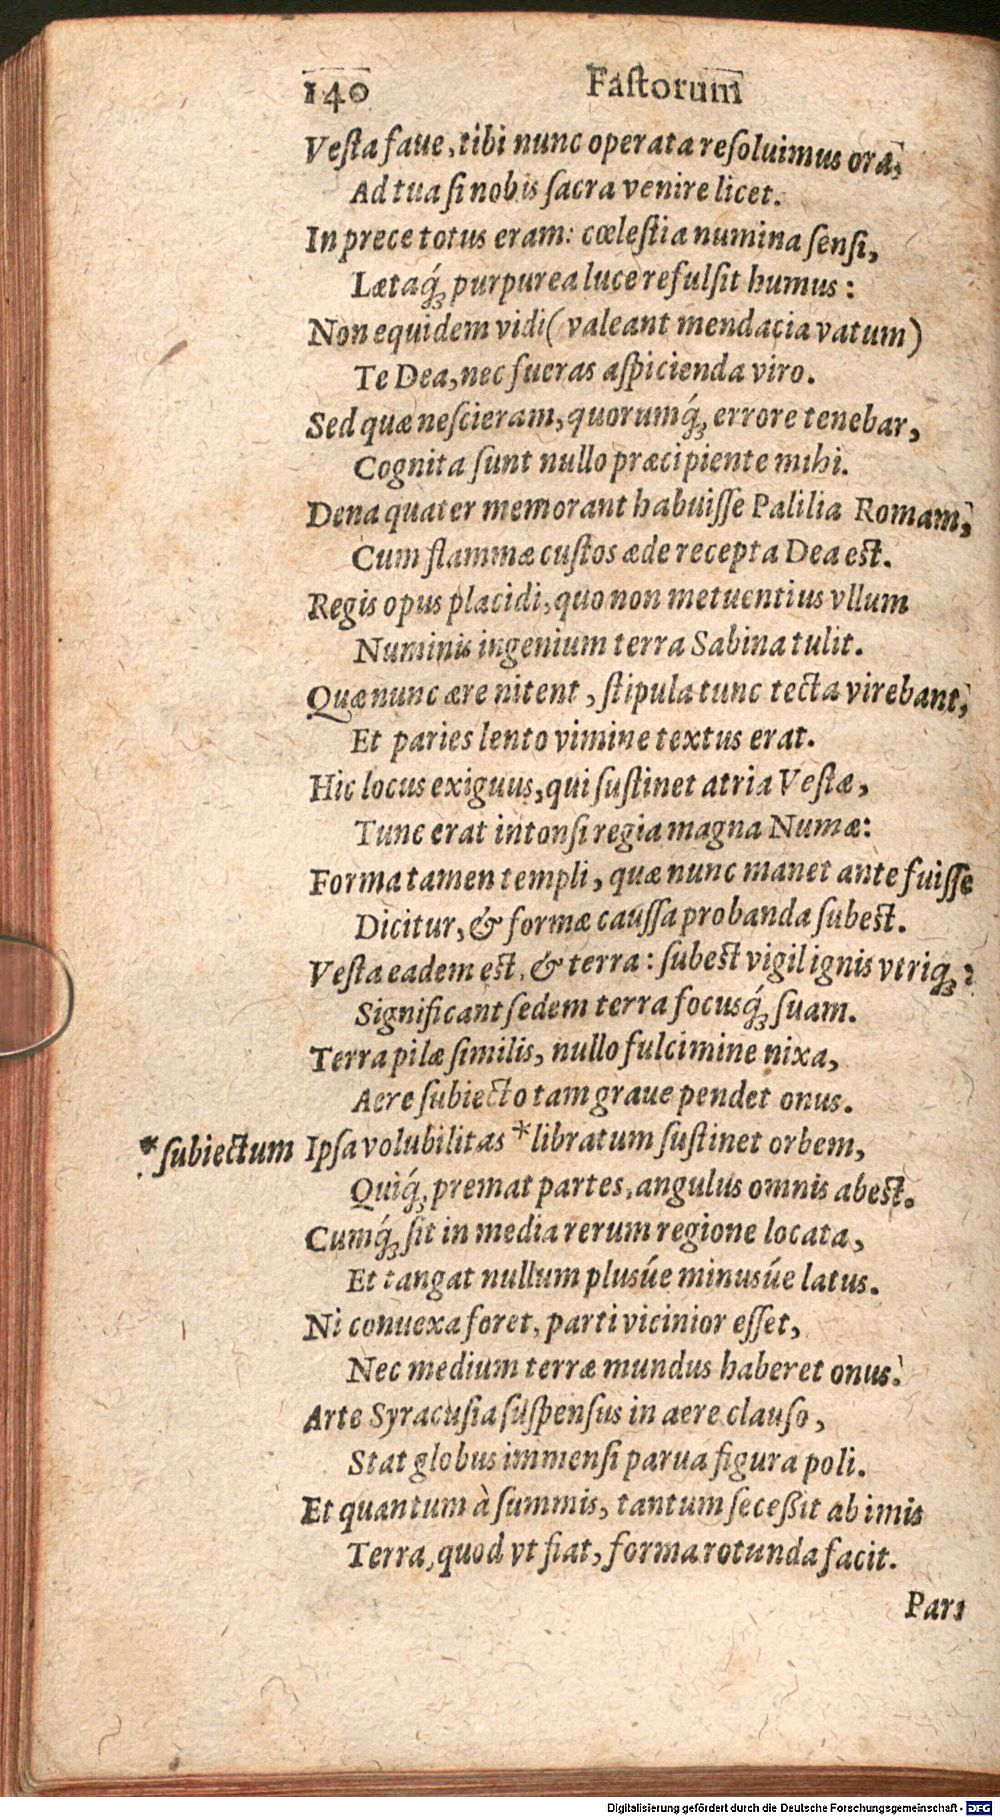 140 Faſtorum
Veſta faue, tibi nunc operata reſoluimus ora,
Ad tua ſi nobis ſacra venire licet.
In prece totus eram: cœleſtia numina ſenſi,
Lætaq́ꝫ purpurea luce refulſit humus:
Non equidem vidi (valeant mendacia vatum)
Te Dea, nec fueras aſpicienda viro.
Sed quæ neſcieram, quorumq́ꝫ errore tenebar,
Cognita ſunt nullo præcipiente mihi.
Dena quater memorant habuiſſe Palilia Romam,
Cum flammæ cuſtos æde recepta Dea eſt.
Regis opus placidi, quo non metuentius vllum
Numinis ingenium terra Sabina tulit.
Quæ nunc ære nitent, ſtipula tunc tecta virebant,
Et paries lento vimine textus erat.
Hic locus exiguus, qui ſuſtinet atria Veſtæ,
Tunc erat intonſi regia magna Numæ:
Forma tamen templi, quæ nunc manet ante fuiſſe
Dicitur, & formæ cauſſa probanda ſubeſt.
Veſta eadem eſt, & terra: ſubeſt vigil ignis vtriqꝫ:
Significant ſedem terra focusq́ꝫ ſuam.
Terra pilæ ſimilis, nullo fulcimine nixa,
Aere ſubiecto tam graue pendet onus.
* ſubiectum Ipſa volubilitas * libratum ſuſtinet orbem,
Quiq́ꝫ premat partes, angulus omnis abeſt.
Cumq́ꝫ ſit in media rerum regione locata,
Et tangat nullum plusúe minusúe latus.
Ni conuexa foret, parti vicinior eſſet,
Nec medium terræ mundus haberet onus.
Arte Syracuſia ſuſpenſus in aere clauſo,
Stat globus immenſi parua figura poli.
Et quantum à ſummis, tantum ſeceßit ab imis
Terra, quod vt fiat, forma rotunda facit.
Pars
Digitalisierung gefördert durch die Deutsche Forschungsgemeinschaft - DFG